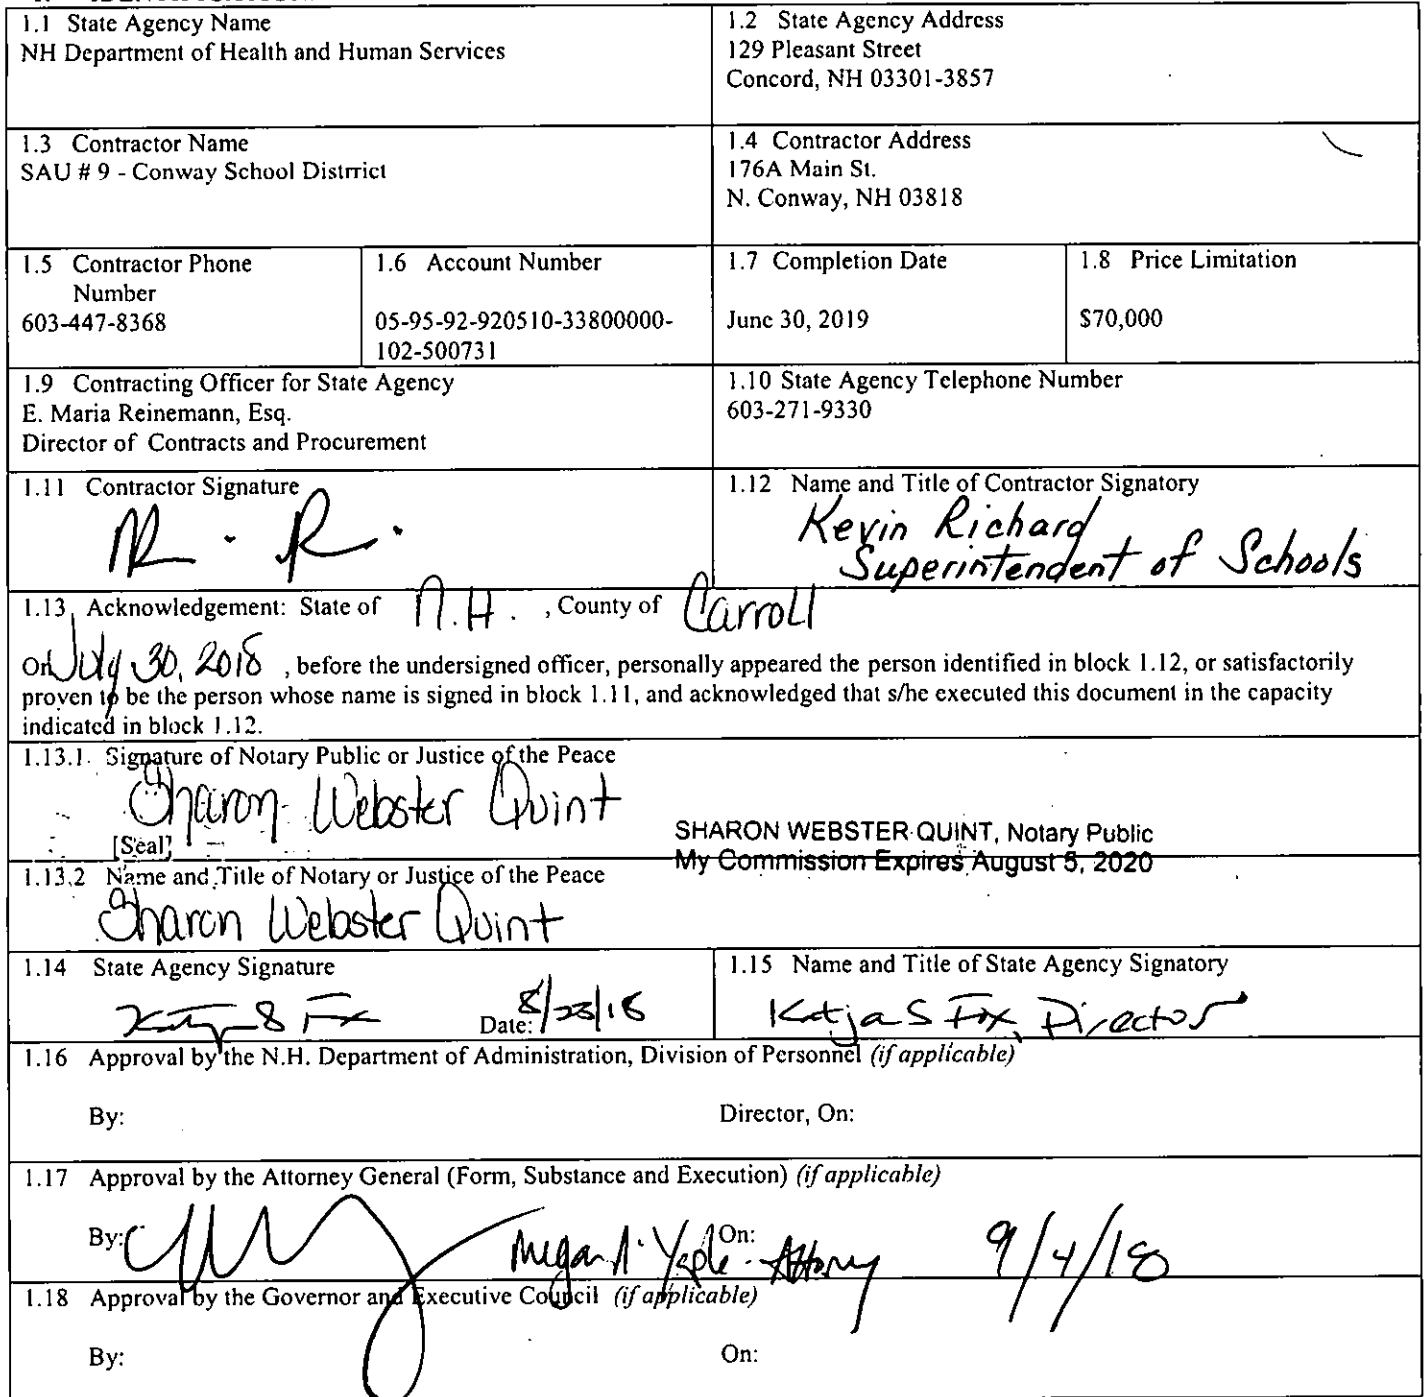 1.1 State Agency Name
NH Department of Health and Human Services
1.2 State Agency Address
129 Pleasant Street
Concord, NH 03301-3857
1.3 Contractor Name
SAU # 9 - Conway School Distrrict
1.4 Contractor Address
176A Main St.
N. Conway, NH 03818
1.5 Contractor Phone
Number
603-447-8368
1.6 Account Number
05-95-92-920510-33800000-
102-500731
1.7 Completion Date
June 30, 2019
1.8 Price Limitation
$70,000
1.9 Contracting Officer for State Agency
E. Maria Reinemann, Esq.
Director of Contracts and Procurement
1.10 State Agency Telephone Number
603-271-9330
1.11 Contractor Signature
1.12 Name and Title of Contractor Signatory
Kevin Richard
Superintendent of Schools
1.13 Acknowledgement: State of N.H. , County of Carroll
On July 30, 2018 , before the undersigned officer, personally appeared the person identified in block 1.12, or satisfactorily
proven to be the person whose name is signed in block 1.11, and acknowledged that s/he executed this document in the capacity
indicated in block 1.12.
1.13.1 Signature of Notary Public or Justice of the Peace
Sharon Webster Quint
[Seal]
SHARON WEBSTER QUINT, Notary Public
My Commission Expires August 5, 2020
1.13.2 Name and Title of Notary or Justice of the Peace
Sharon Webster Quint
1.14 State Agency Signature
Date: 8/23/18
1.15 Name and Title of State Agency Signatory
Katja S Fox, Director
1.16 Approval by the N.H. Department of Administration, Division of Personnel (if applicable)
By:
Director, On:
1.17 Approval by the Attorney General (Form, Substance and Execution) (if applicable)
By: Megan A. Yaple - Attorney On: 9/4/18
1.18 Approval by the Governor and Executive Council (if applicable)
By:
On: